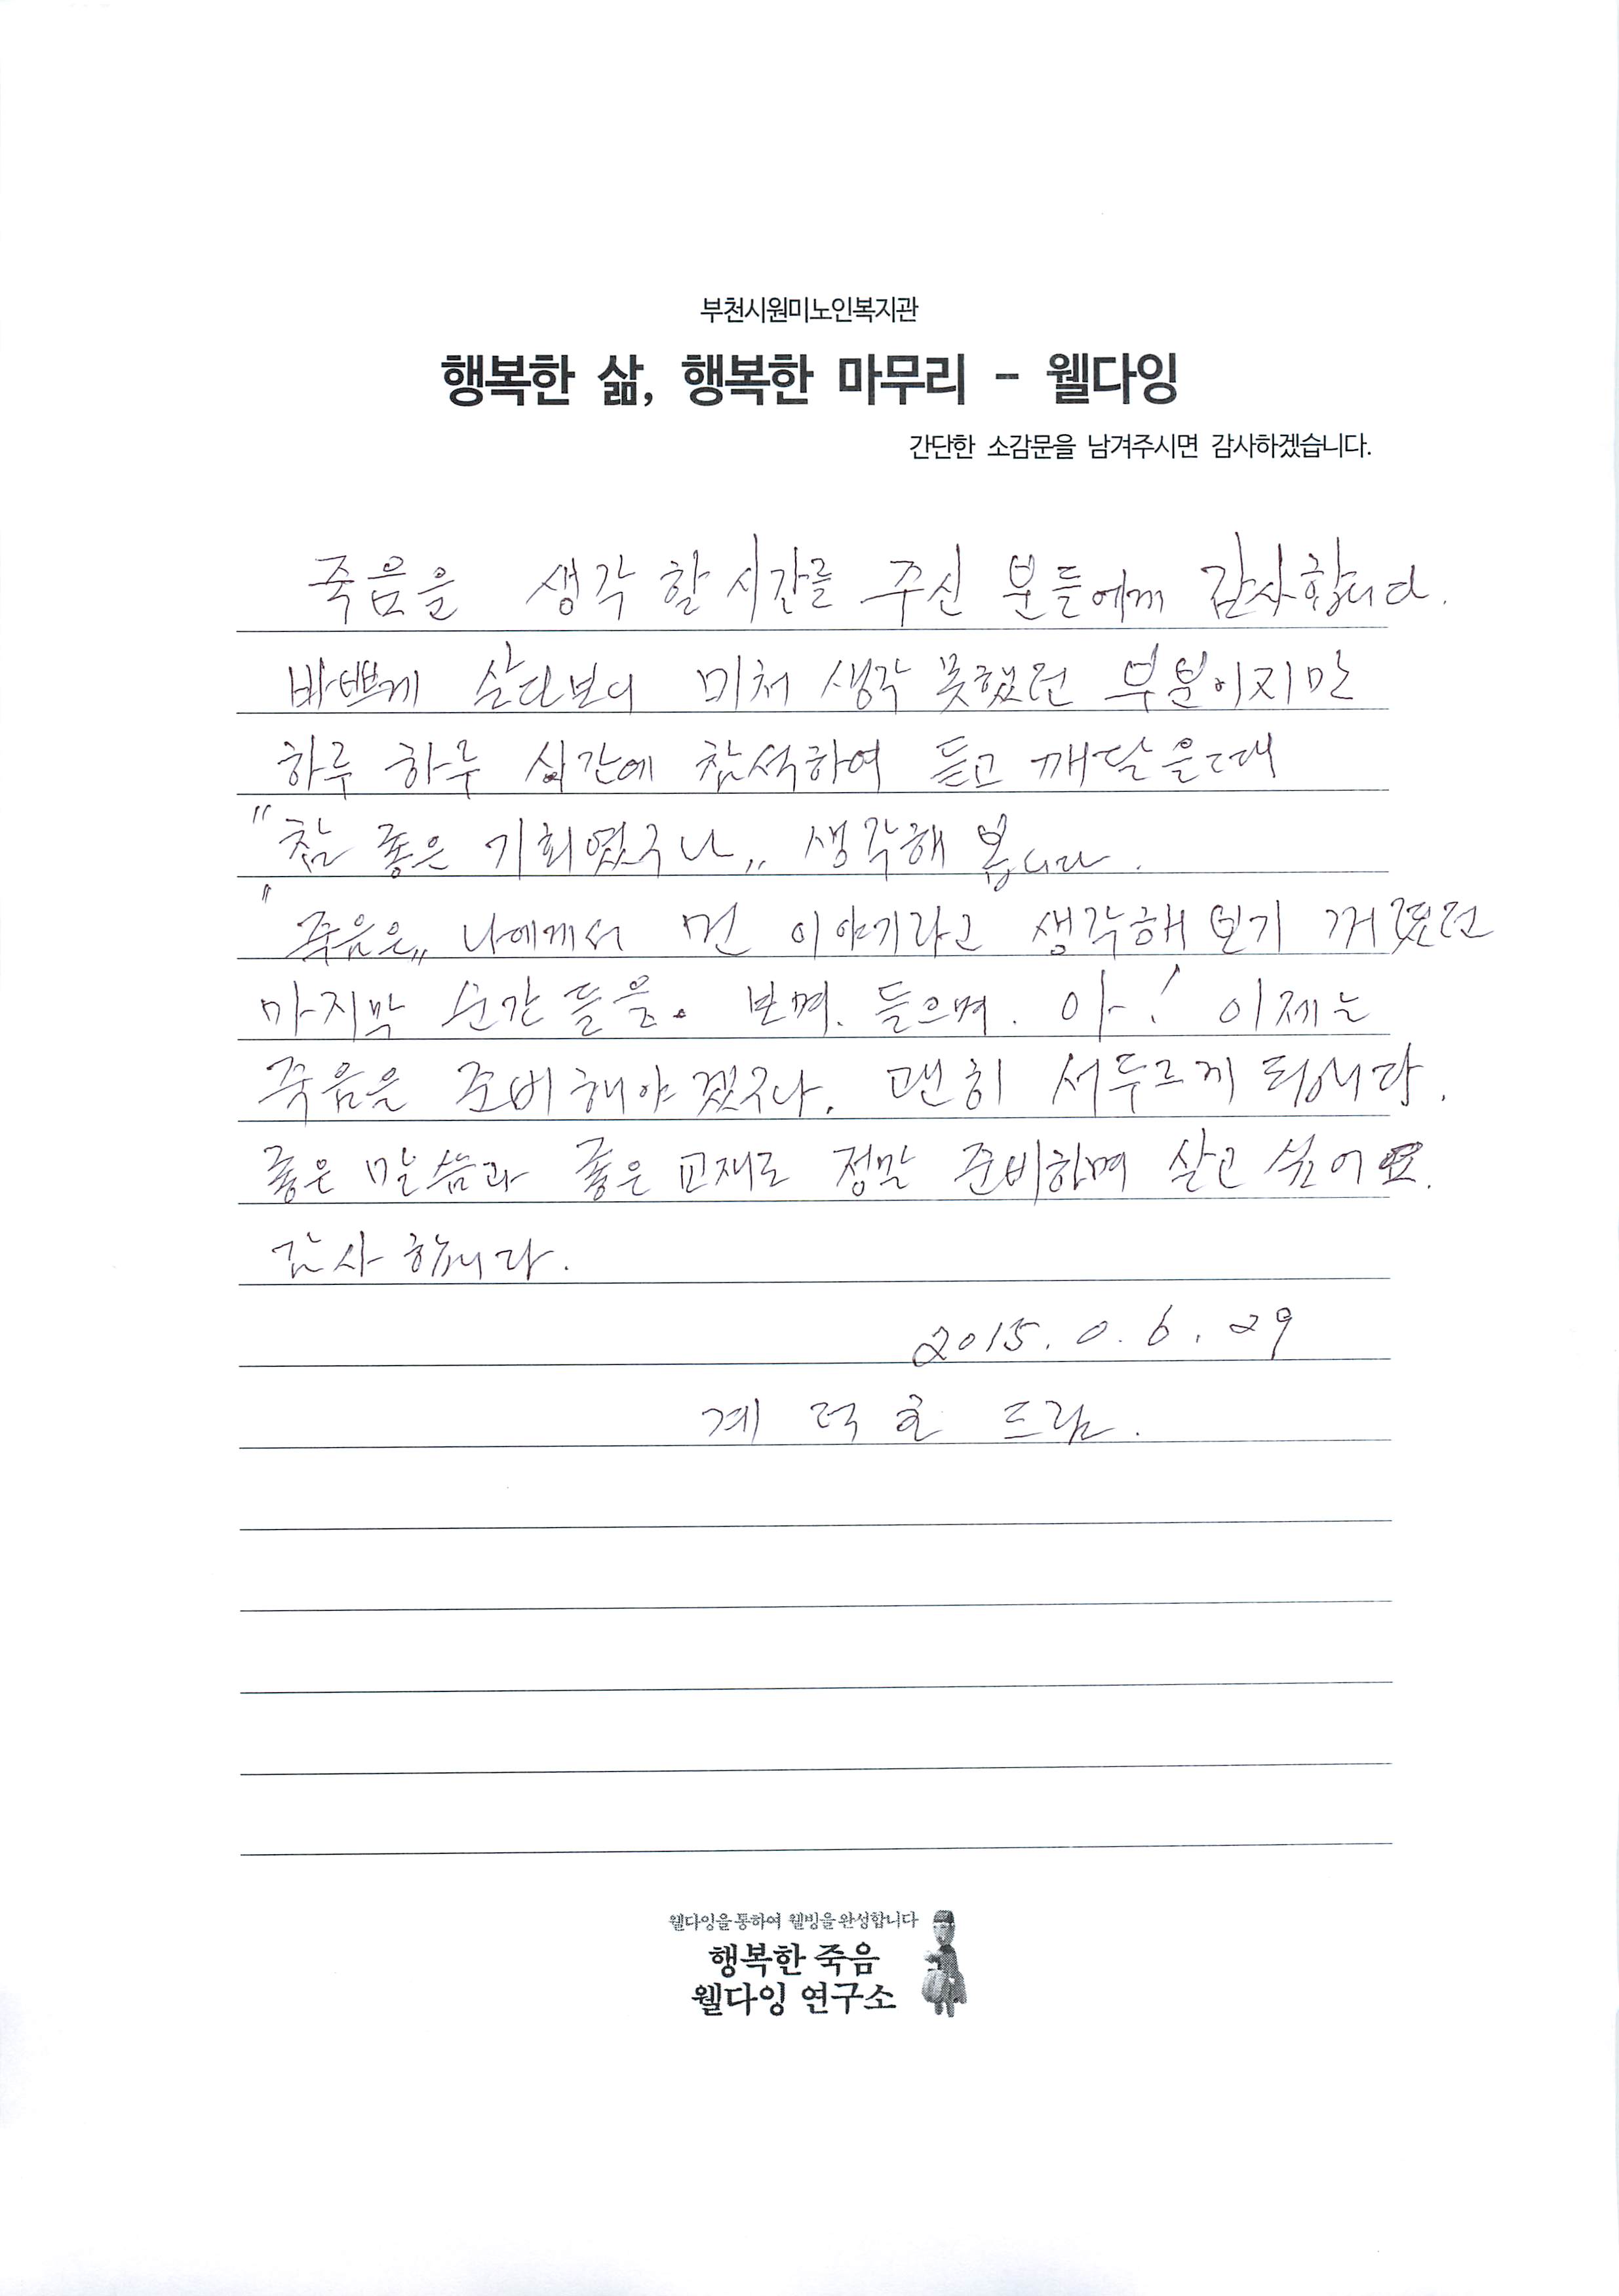 부천시원미노인복지관
행복한 삶, 행복한 마무리 - 웰다잉
간단한 소감문을 남겨주시면 감사하겠습니다.
죽음을 생각 할 시간를 주신 분들에게 감사합니다.
바쁘게 살다보니 미처 생각 못했던 부분이지만
하루 하루 시간에 참석하여 듣고 깨달을때
"참 좋은 기회였구나„ 생각해 봅니다.
"죽음은„ 나에게서 먼 이야기라고 생각해 보기 꺼렸던
마지막 순간들을. 보며. 들으며. 아! 이제는
죽음은 준비해야겠구나. 괜히 서두르게 되네요
좋은 말씀과 좋은 교재로 정말 준비하며 살고 싶어요.
감사합니다.
2015. 0. 6. 29
계 덕 호 드림.
웰다잉을 통하여 웰빙을 완성합니다
행복한 죽음
웰다잉 연구소